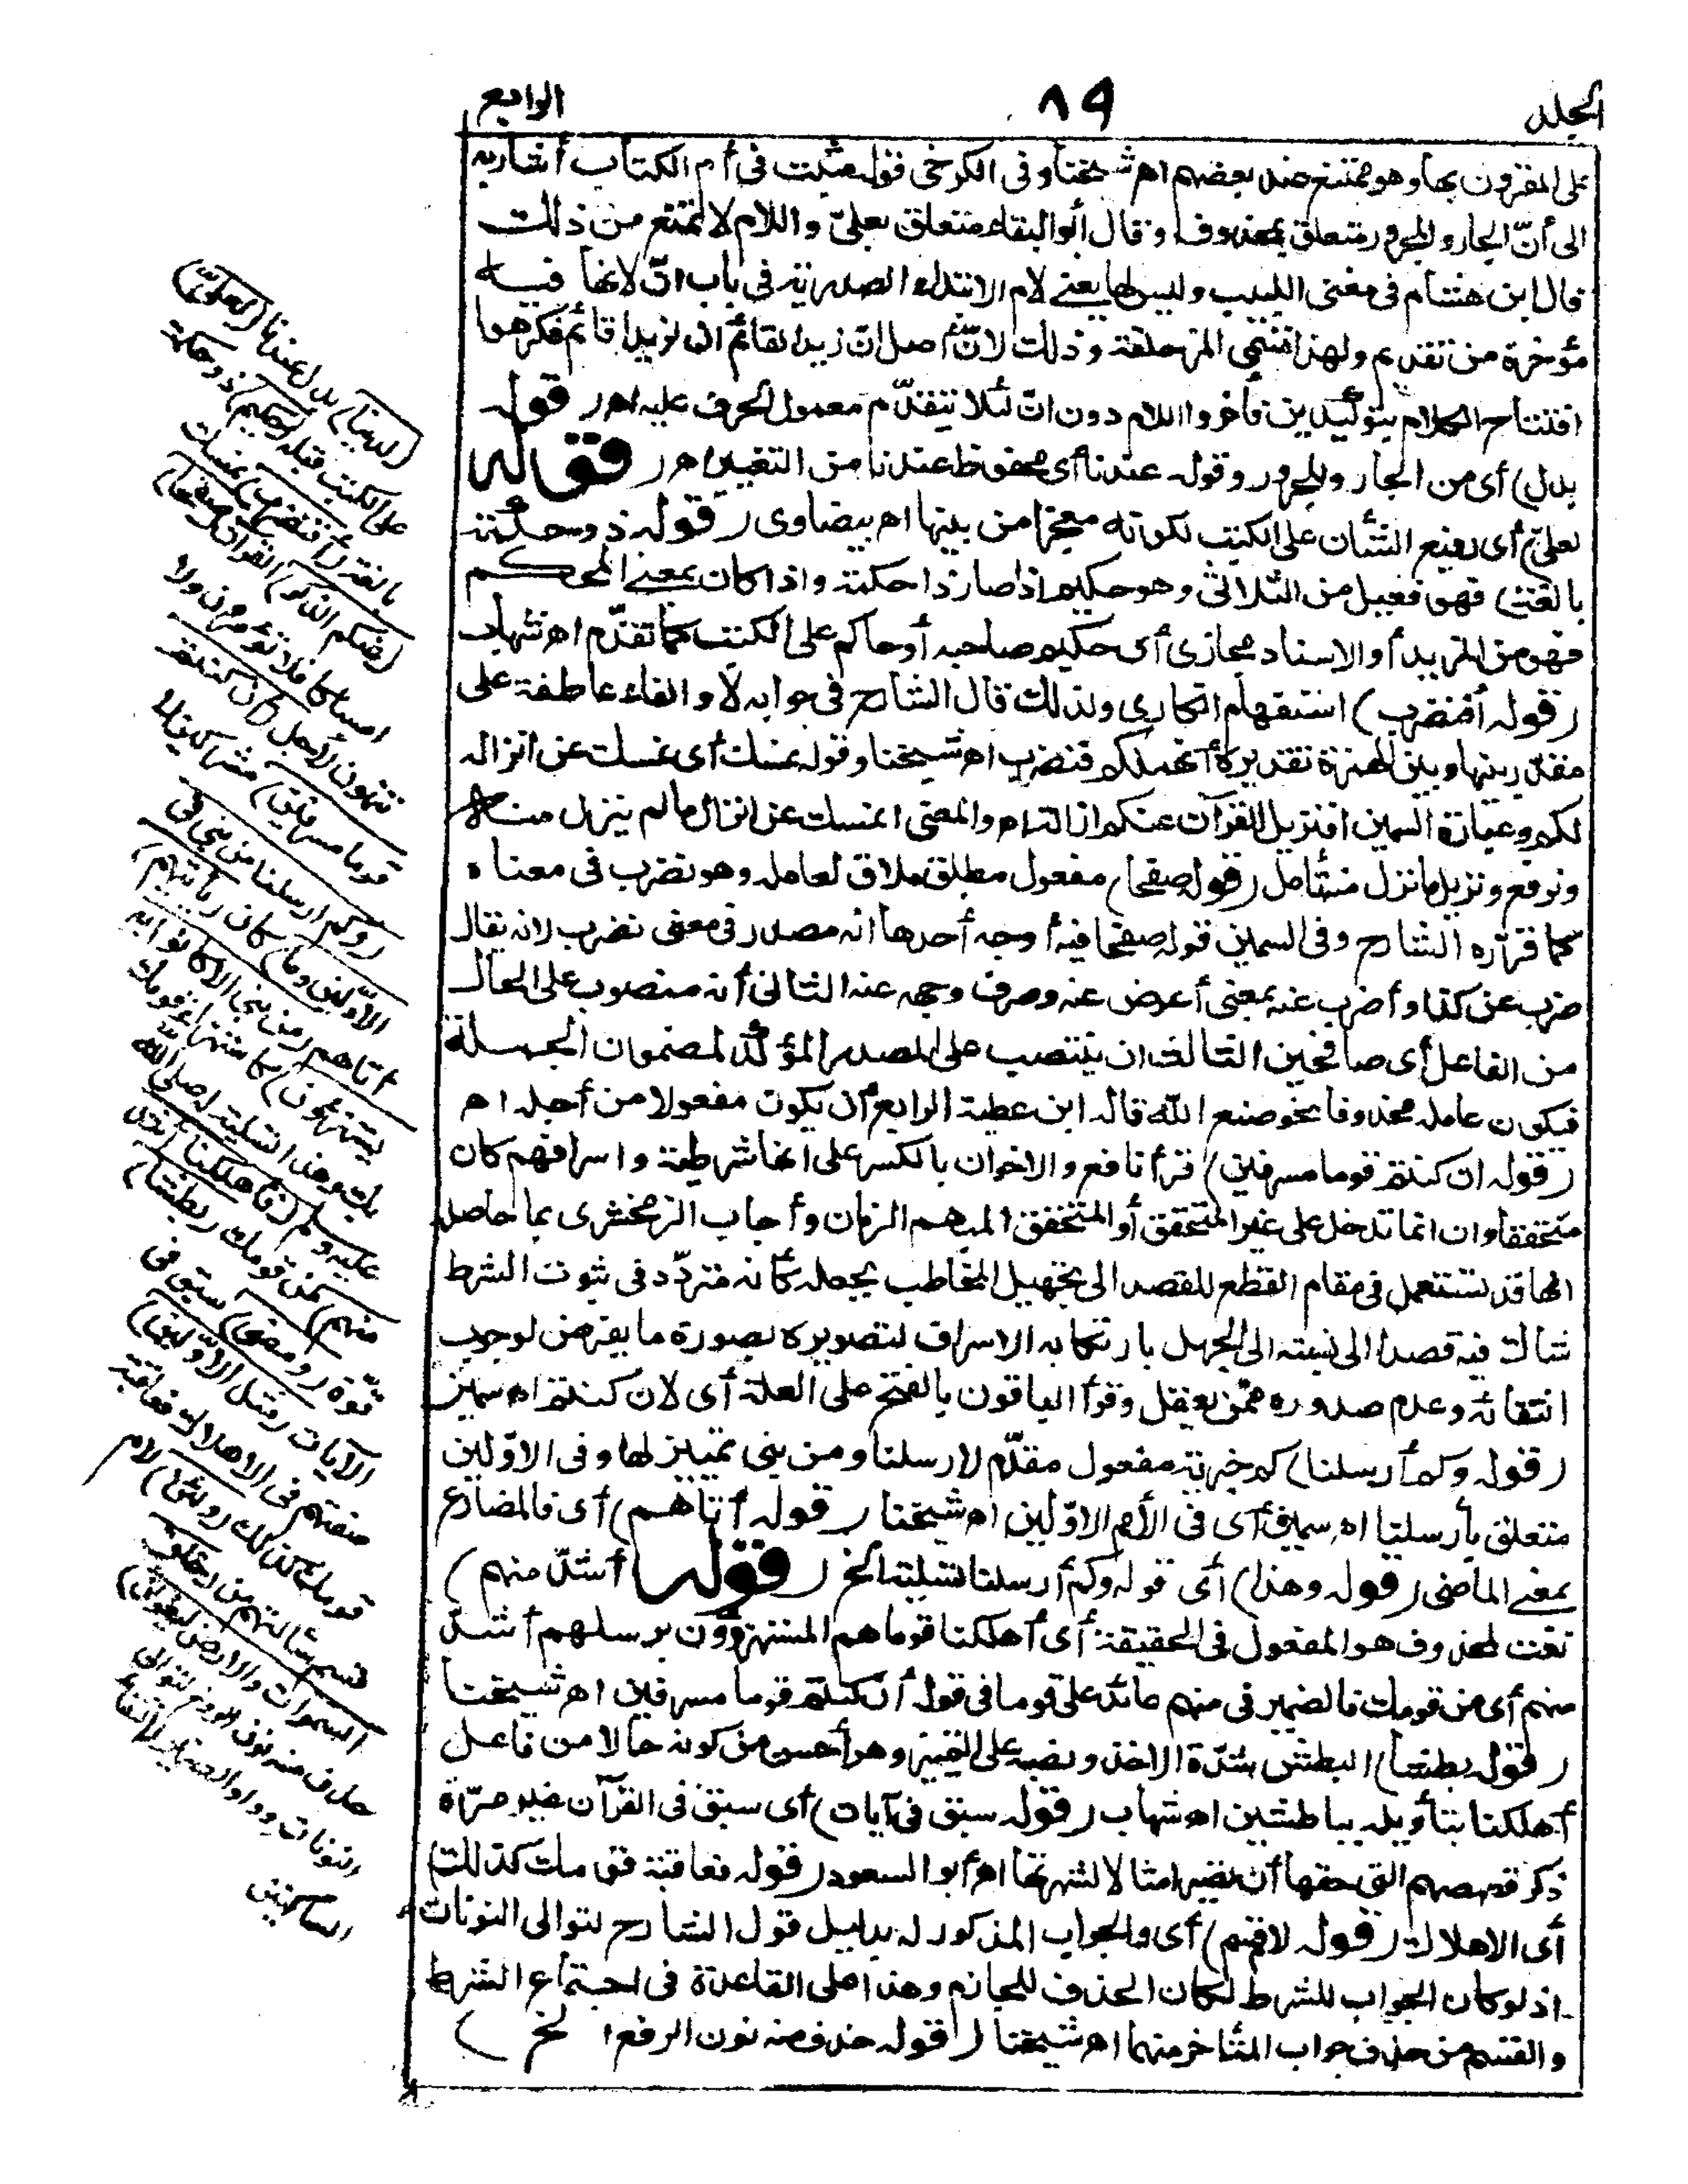 المجلد ٨٩ الرابع
على المقرون بها وهو ممتنع عند بعضهم اهـ شيخنا وفى الكرخى قوله مثبت فى أم الكتاب أشار به
الى أنّ الجار والمجرور متعلق بمحذوف وقال أبو البقاء متعلق بعلىّ واللام لا تمنع من ذلك
قال ابن هشام فى مغنى اللبيب وليس لها يعنى لام الابتداء الصدرية فى باب انّ لانها فيه
مؤخرة من تقديم ولهذا تسمى المزحلقة وذلك لانّ أصل انّ زيدا لقائم لان زيدا قائم فكرهوا
افتتاح الكلام بتوكيدين فأخروا اللام دون انّ لئلا يتقدّم معمول الحرف عليه اهـ (قوله
بدل) أى من الجار والمجرور وقوله عندنا أى محفوظ عندنا من التغيير اهـ (قوله
لعلىّ) أى رفيع الشأن على الكتب لكونه معجزا من بينها اهـ بيضاوى (قوله ذو حكمة
بالغة) فهو فعيل من الثلاثى وهو حكيم اذا صار ذا حكمة واذا كان بمعنى المحكم
فهو من المزيد أو الاسناد مجازى أى حكيم صاحبه أو حاكم على الكتب كما تقدّم اهـ شهاب
(قوله أفنضرب) استفهام انكارى ولذلك قال الشارح فى جوابه لا والفاء عاطفة على
مقدّر بينها وبين الهمزة تقديره أنهملكم فنضرب اهـ شيخنا وقوله نمسك أى نمسك عن انزاله
لكم وعبارة السمين افنزيل القرآن عنكم ازالة اهـ والمعنى انمسك عن انزال ما لم ينزل منه
ونرفع ونزيل ما نزل منه تأمل (قوله صفحا) مفعول مطلق ملاق لعامله وهو نضرب فى معناه
كما قرّره الشارح وفى السمين قوله صفحا فيه أوجه أحدها انه مصدر فى معنى نضرب لانه يقال
ضرب عن كذا وأضرب عنه بمعنى أعرض عنه وصرف وجهه عنه الثانى أنه منصوب على الحال
من الفاعل أى صافحين الثالث ان ينتصب على المصدر المؤكد لمضمون الجملة
فيكون عامله محذوفا نحو صنع الله قاله ابن عطية الرابع أن يكون مفعولا من أجله اهـ
(قوله ان كنتم قوما مسرفين) قرأ نافع والاخوان بالكسر على انها شرطية واسرافهم كان
متحققا وان انما تدخل على غير المتحقق أو المتحقق المبهم الزمان وأجاب الزمخشرى بما حاصله
انها قد تستعمل فى مقام القطع للقصد الى تجهيل المخاطب بجعله كأنه متردّد فى ثبوت الشرط
شاك فيه قصدا الى نسبته الى الجهل بارتكابه الاسراف لتصويره بصورة ما يفرض لوجوب
انتفائه وعدم صدوره ممن يعقل وقرأ الباقون بالفتح على العلة أى لان كنتم اهـ سمين
(قوله وكم أرسلنا) كم خبرية مفعول مقدّم لارسلنا ومن نبى تمييز لها وفى الاوّلين
متعلق بأرسلنا اهـ سمين أى فى الأمم الاوّلين اهـ شيخنا (قوله أتاهم) أى فالمضارع
بمعنى الماضى (قوله وهذا) أى قوله وكم أرسلنا تسلية الخ (قوله أشدّ منهم)
نعت لمحذوف هو المفعول فى الحقيقة أى أهلكنا قوما هم المستهزؤن برسلهم أشدّ
منهم أى من قومك فالضمير فى منهم عائد على قوما فى قوله أن كنتم قوما مسرفين اهـ شيخنا
(قوله بطشا) البطش شدّة الاخذ ونصبه على التمييز وهو أحسن من كونه حالا من فاعل
أهلكنا بتأويله بباطشين اهـ شهاب (قوله سبق فى آيات) أى سبق فى القرآن غير مرّة
ذكر قصصهم التى حقها أن تصير امثالا لشهرتها اهـ أبو السعود (قوله فعاقبة قومك كذلك)
أى الاهلاك (قوله لام قسم) أى والجواب المذكور له بدليل قول الشارح لتوالى النونات
اذ لو كان الجواب للشرط لكان الحذف للجازم وهذا على القاعدة فى اجتماع الشرط
والقسم من حذف جواب المتأخر منهما اهـ شيخنا (قوله حذف منه نون الرفع الخ)
(لدينا) بدل عندنا (لعلىّ)
على الكتب قبله (حكيم) ذو حكمة
بالغة (أفنضرب) نمسك
(عنكم الذكر) القرآن (صفحا)
امساكا فلا تؤمرون ولا
تنهون لأجل (أن كنتم
قوما مسرفين) مشركين لا
(وكم أرسلنا من نبى فى
الأوّلين وما) كان (يأتيهم)
أتاهم (من نبى الا كانوا به
يستهزؤن) كاستهزاء قومك
بك وهذا تسلية له صلى الله
عليه وسلم (فأهلكنا أشدّ
منهم) من قومك (بطشا)
قوّة (ومضى) سبق فى
الآيات (مثل الأوّلين)
صفتهم فى الاهلاك فعاقبة
قومك كذلك (ولئن) لام
قسم (سألتهم من خلق
السموات والارض ليقولن)
حذف منه نون الرفع لتوالى
النونات وواو الضمير لالتقاء
الساكنين